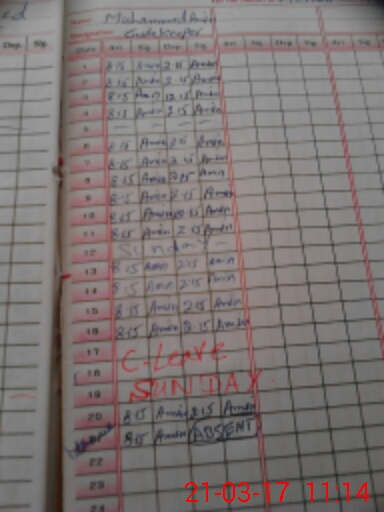 Mohammad Amin
Gatekeeper
Date Arr. Sig. Dep. Sig. Arr. Sig. Dep. Sig. Arr. Sig.
1 8.15 Amin 2.15 Amin
2 8.15 Amin 2.15 Amin
3 8.15 Amin 12.15 Amin
4 8.15 Amin 2.15 Amin
5 — — — —
6 8.15 Amin 2.15 Amin
7 8.15 Amin 2.15 Amin
8 8.15 Amin 2.15 Amin
9 8.15 Amin 2.15 Amin
10 8.15 Amin 2.15 Amin
11 8.15 Amin 2.15 Amin
12 Sunday -
13 8.15 Amin 2.15 Amin
14 8.15 Amin 2.15 Amin
15 8.15 Amin 2.15 Amin
16 8.15 Amin 2.15 Amin
17
18 C-Leave
19 SUNDAY.
20 8.15 Amin 2.15 Amin
8.15 Amin ABSENT
22
23
24
21-03-17 11:14